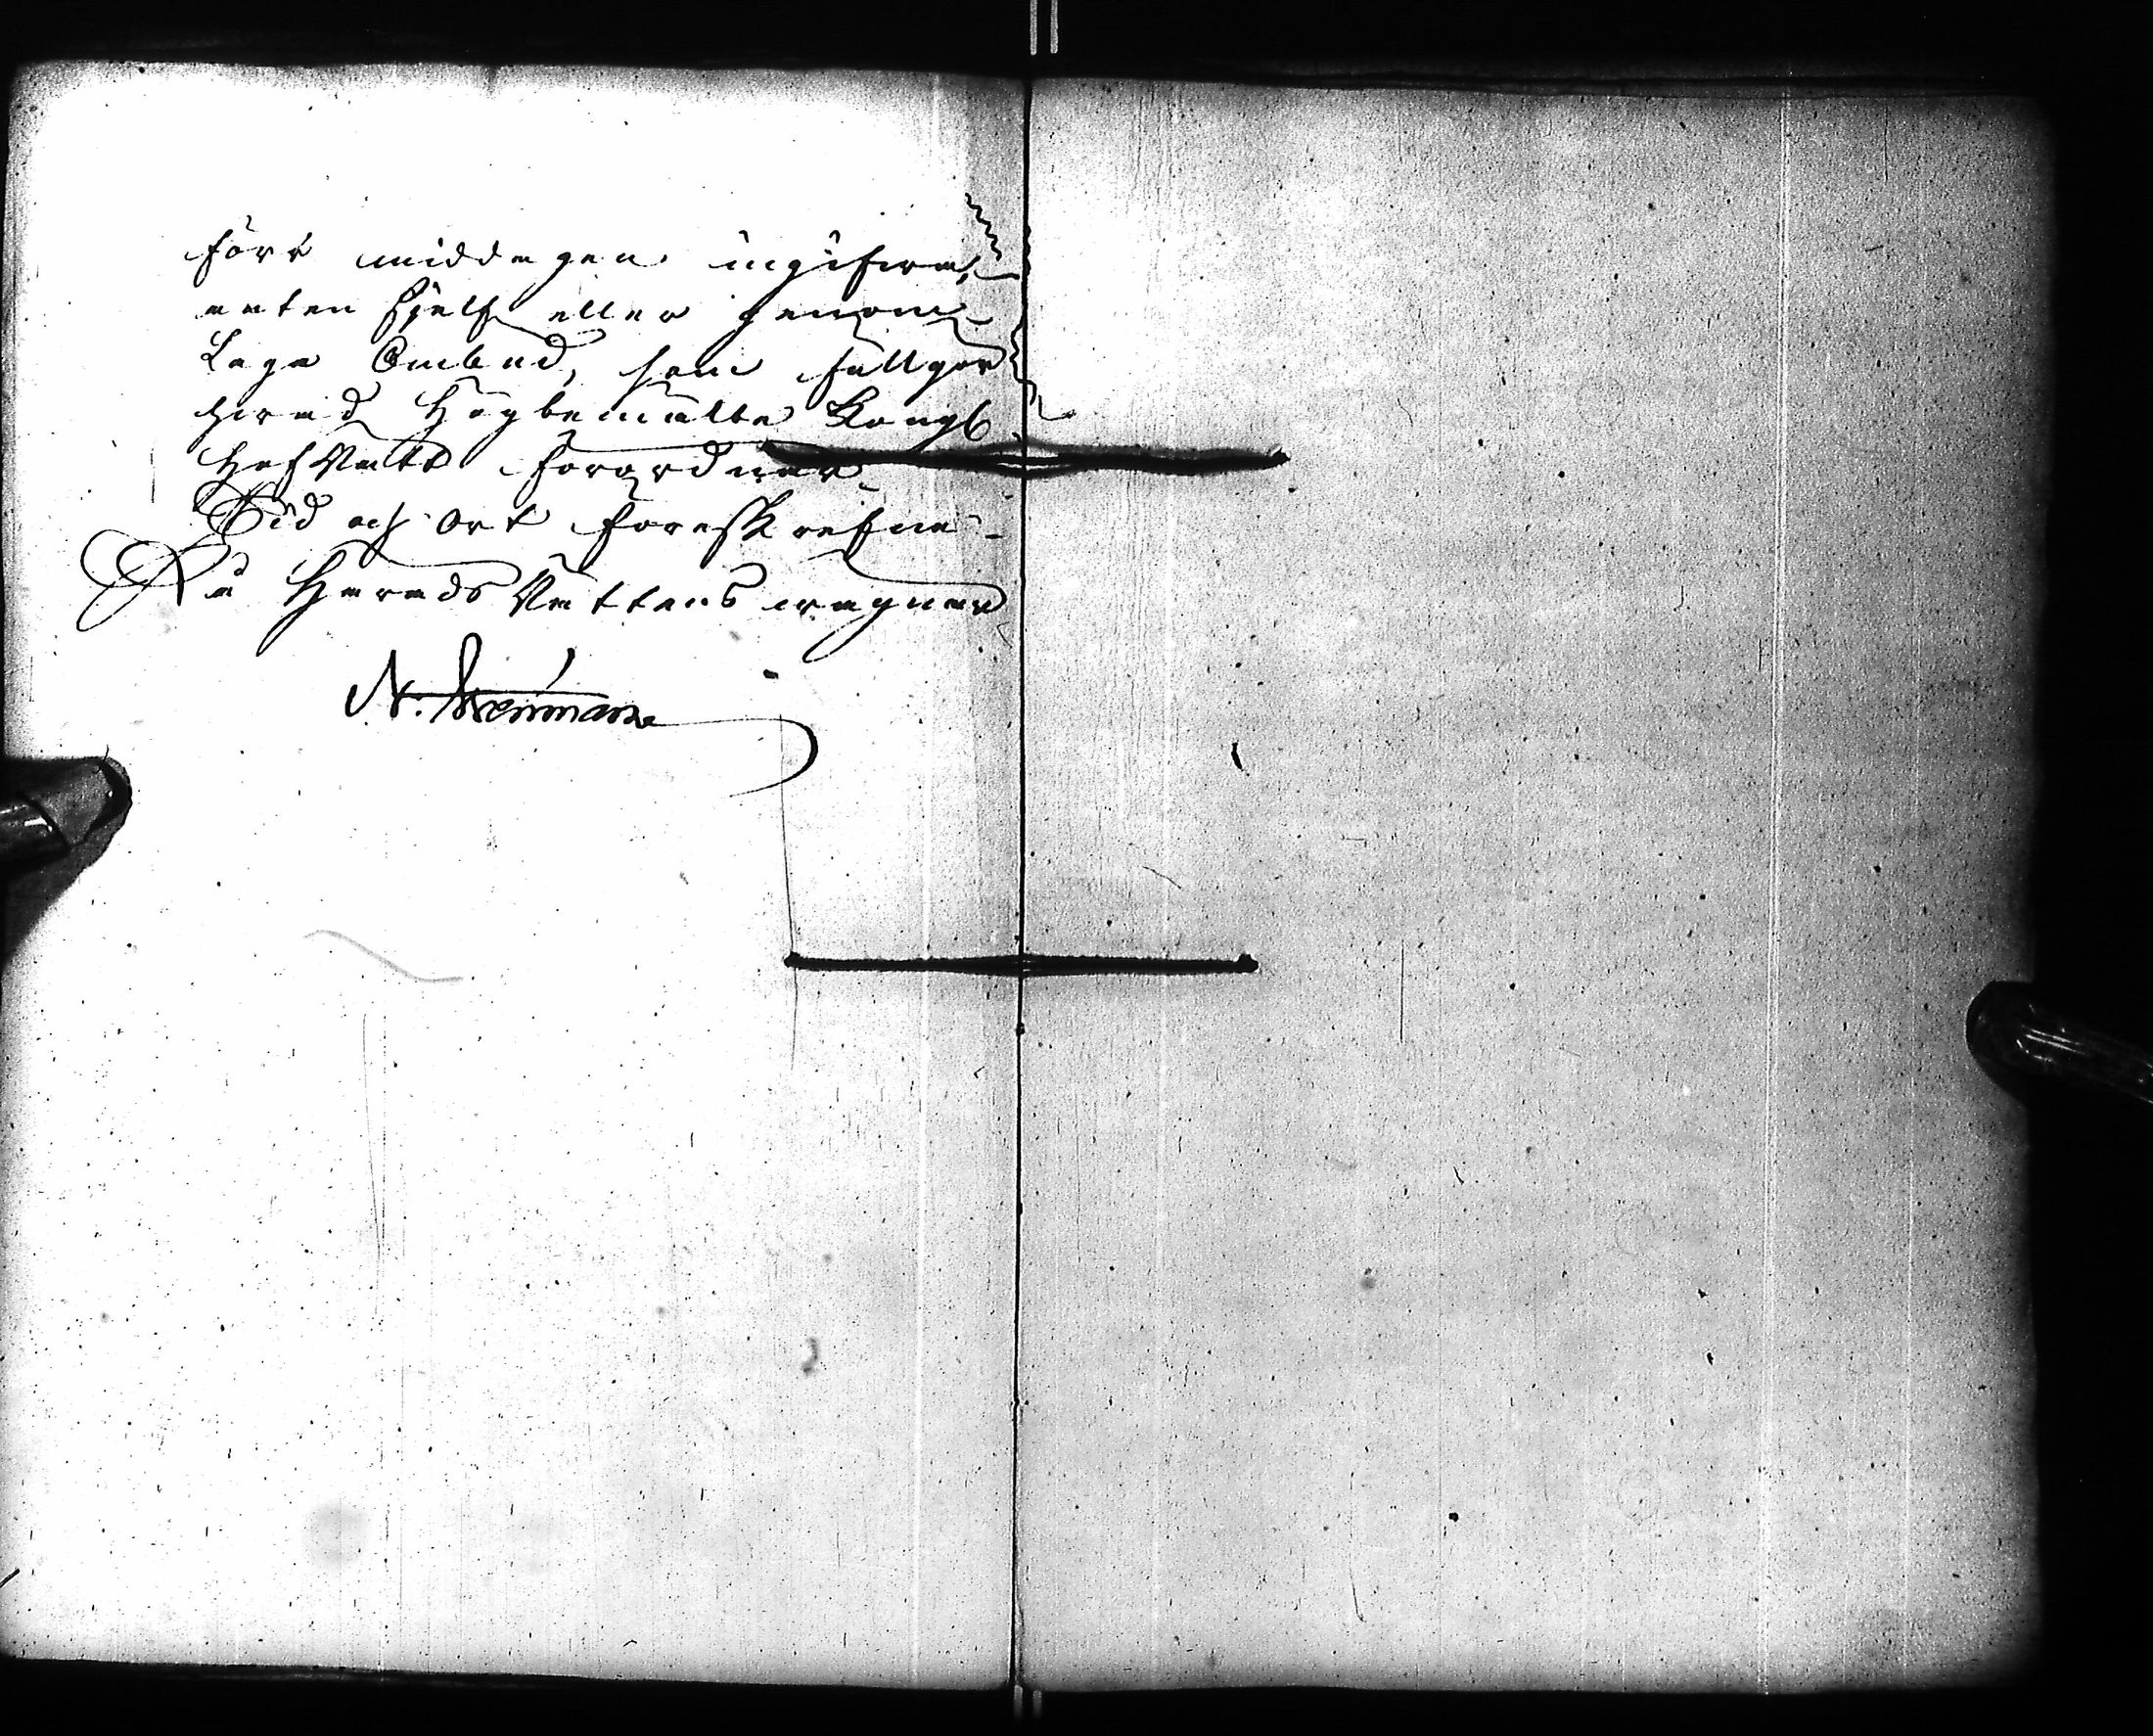 före middagen ingifwa,
anten sjelf eller genom
Laga Ombud, som fullgör
hwad Högbemälte Kongl
HofRätt förordnar.
Tid och Ort föreskrefne.
På HäradsRättens wägnar
N.